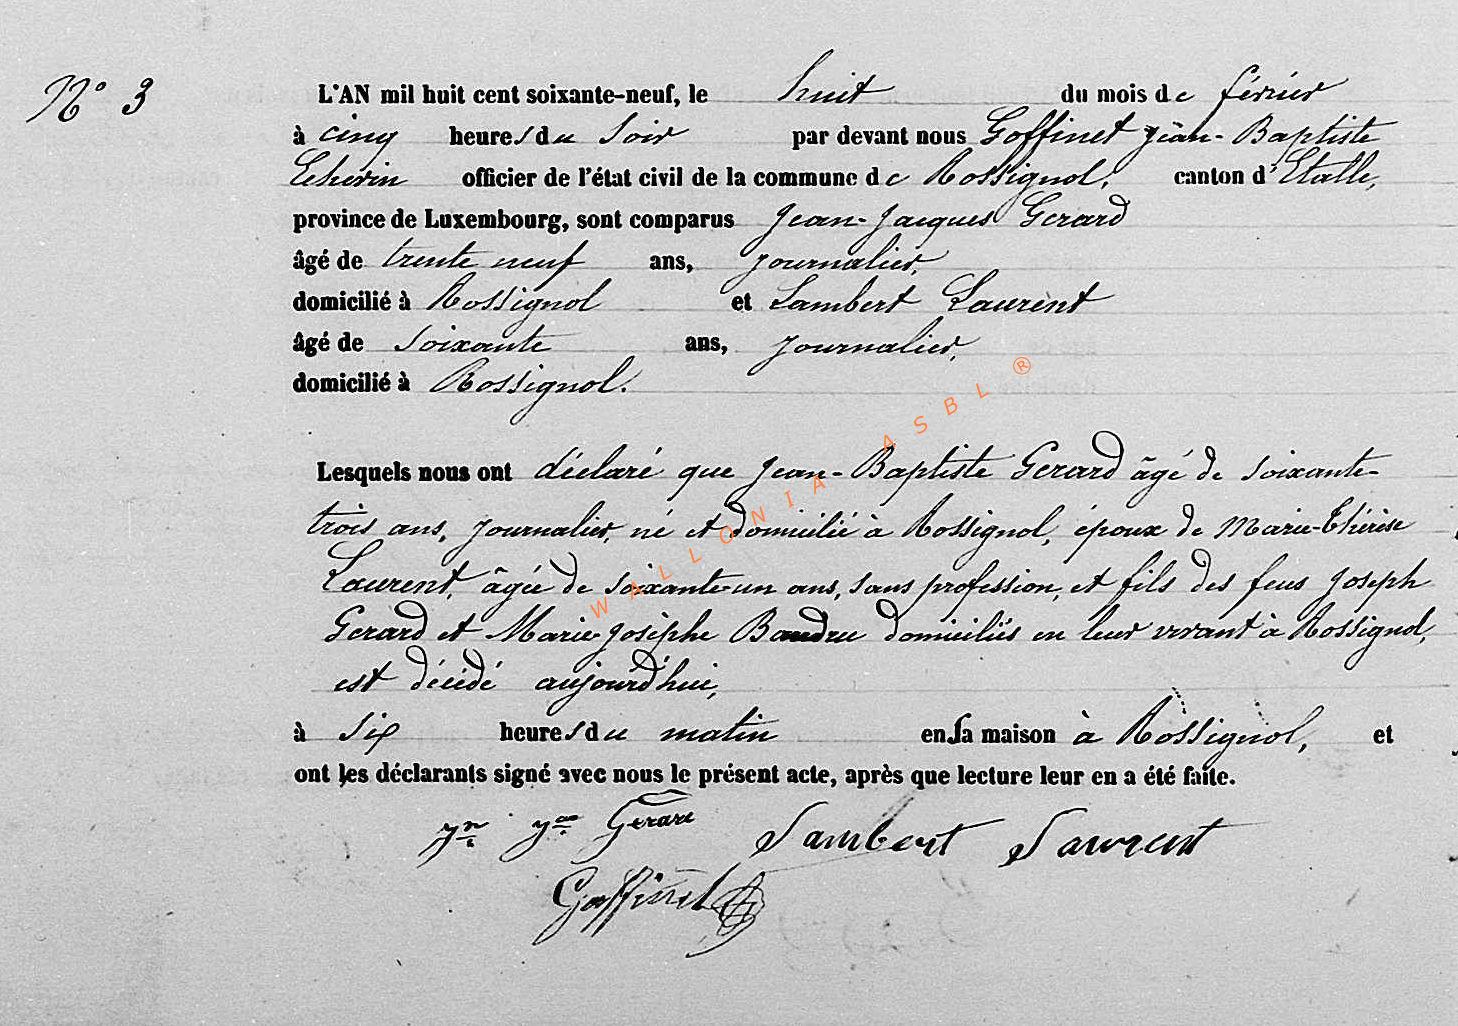 N° 3
L'AN mil huit cent soixante-neuf, le huit du mois de février
à cinq heures du soir par devant nous Goffinet Jean-Baptiste
officier de l'état civil de la commune de Rossignol, canton d'Etalle,
province de Luxembourg, sont comparus Jean-Jacques Gerard
âgé de trente neuf ans, journalier,
domicilié à Rossignol et Lambert Laurent
âgé de soixante ans, journalier,
domicilié à Rossignol.
Lesquels nous ont déclaré que Jean-Baptiste Gerard âgé de soixante-
trois ans, journalier, né et domicilié à Rossignol, époux de Marie-Thérèse
Laurent, âgée de soixante-un ans, sans profession, et fils des feus Joseph
Gerard et Marie-Josèphe domiciliés en leur vivant à Rossignol,
est décédé aujourd'hui,
à six heures du matin en sa maison à Rossignol, et
ont les déclarants signé avec nous le présent acte, après que lecture leur en a été faite.
Jn Jques Gerard Lambert Laurent
Goffinet
WALLONIA ASBL ®